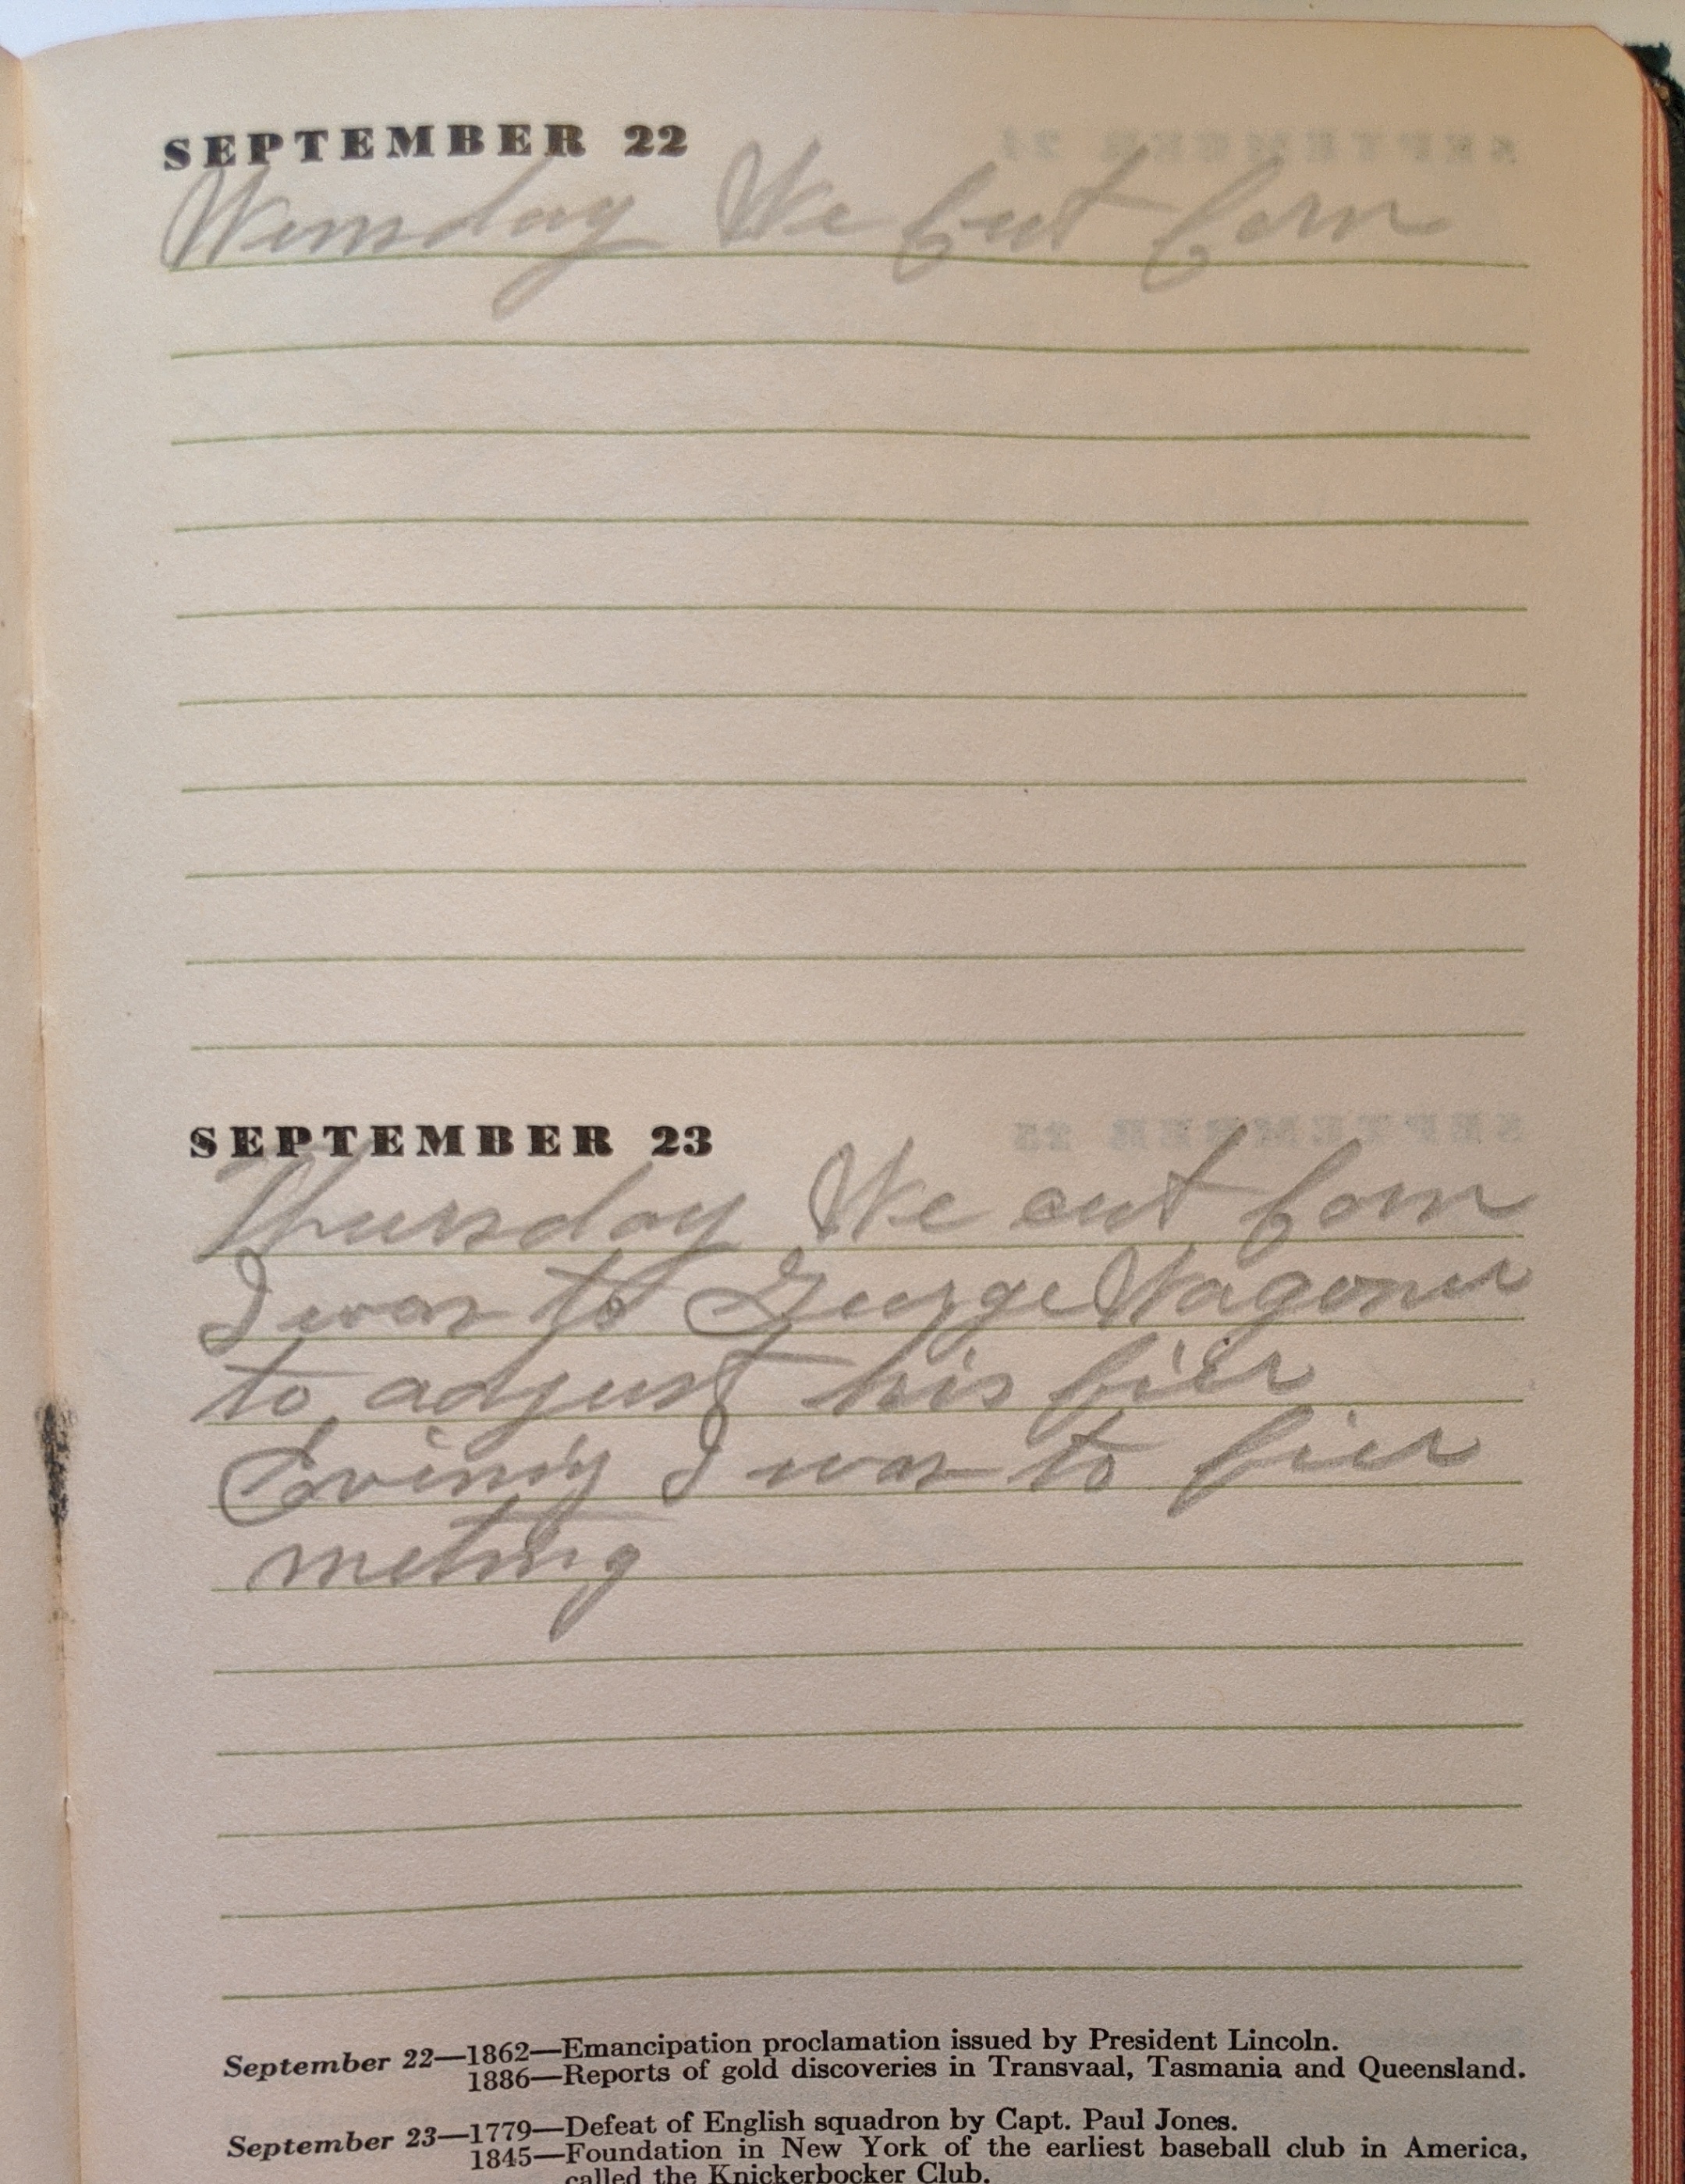 SEPTEMBER 22
Wensday We Cut Corn
SEPTEMBER 23
Thursday We cut Corn
I was to George Wagoner
to adjust his fier
Evening I was to fier
meting
September 22—1862—Emancipation proclamation issued by President Lincoln.
1886—Reports of gold discoveries in Transvaal, Tasmania and Queensland.
September 23—1779—Defeat of English squadron by Capt. Paul Jones.
1845—Foundation in New York of the earliest baseball club in America,
called the Knickerbocker Club.